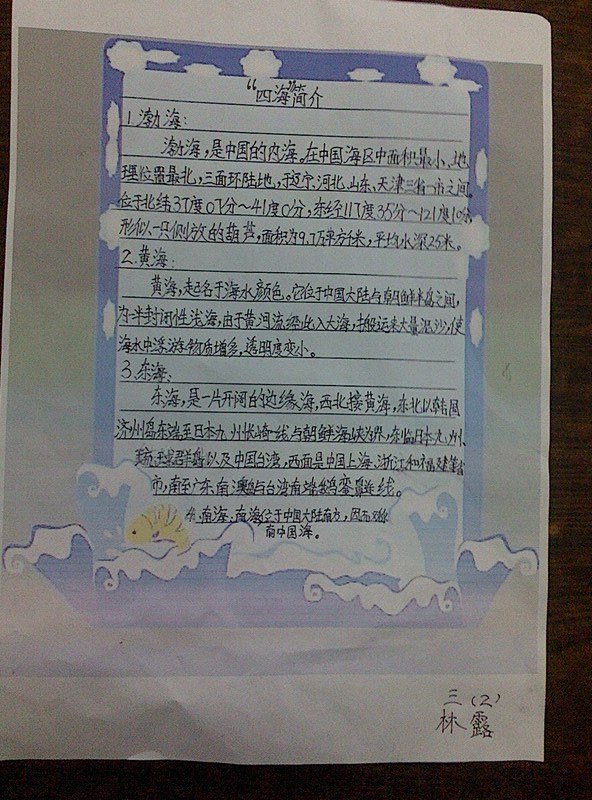 “四海”简介
1.渤海:
渤海,是中国的内海。在中国海区中面积最小、地
理位置最北,三面环陆地,于辽宁、河北、山东、天津三省一市之间。
位于北纬37度07分~41度0分,东经117度35分~121度10分,
形似一只侧放的葫芦,面积为9.7万平方千米,平均水深25米。
2.黄海:
黄海,起名于海水颜色。它位于中国大陆与朝鲜半岛之间,
为一半封闭性浅海,由于黄河流经此入大海,搬运来大量泥沙,使
海水中浮游物质增多,透明度变小。
3.东海:
东海,是一片开阔的边缘海,西北接黄海,东北以韩国
济州岛东端至日本九州长崎一线与朝鲜海峡为界,东临日本九州、
琉球群岛以及中国台湾,西面是中国上海、浙江和福建等省
市,南至广东南澳岛与台湾南端鹅銮鼻连线。
4.南海:南海位于中国大陆南方,因而又称
南中国海。
三(2)
林露